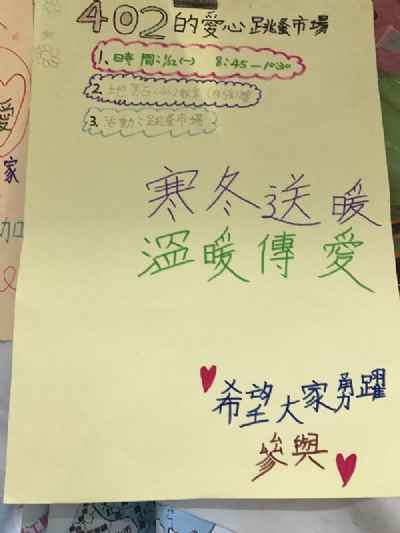 402的愛心跳蚤市場
1、時間:1/12(一) 8:45—10:30
2、地點:402教室
3、活動:跳蚤市場
寒冬送暖
溫暖傳愛
希望大家勇躍
參與
愛
家
加